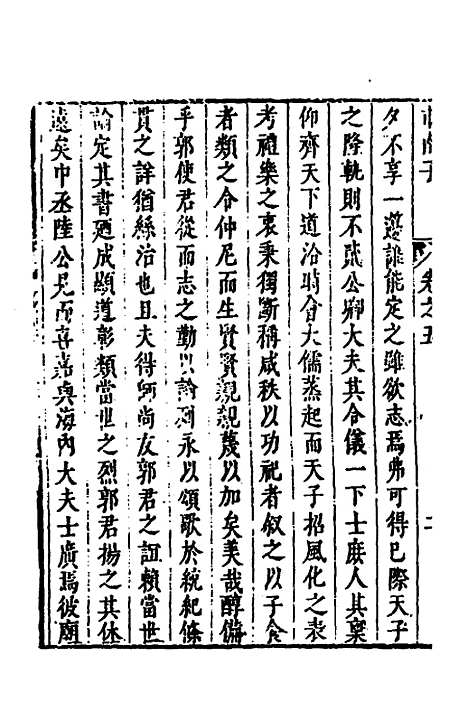 卷之五
夕不享一邊誰能定之雖欲志焉弗可得已際天子
之隆軌則不啻公卿大夫其合儀一下士庶人其稟
仰齊天下道洽時會大儒蒸起而天子招風化之表
考禮樂之衷秉獨斷稱咸秩以功祀者叙之以子食
者類之令仲尼而生賢賢親親蔑以加矣美哉醇備
乎郭使君從而志之勤以論列永以頌歌於統紀條
貫之詳猶絲治也且夫得師尚友郭君之誼賴當世
論定其書廼成顯道彰類當世之烈郭君揚之其休
遠矣中丞陸公見而喜嘉與海內大夫士廣焉彼廟